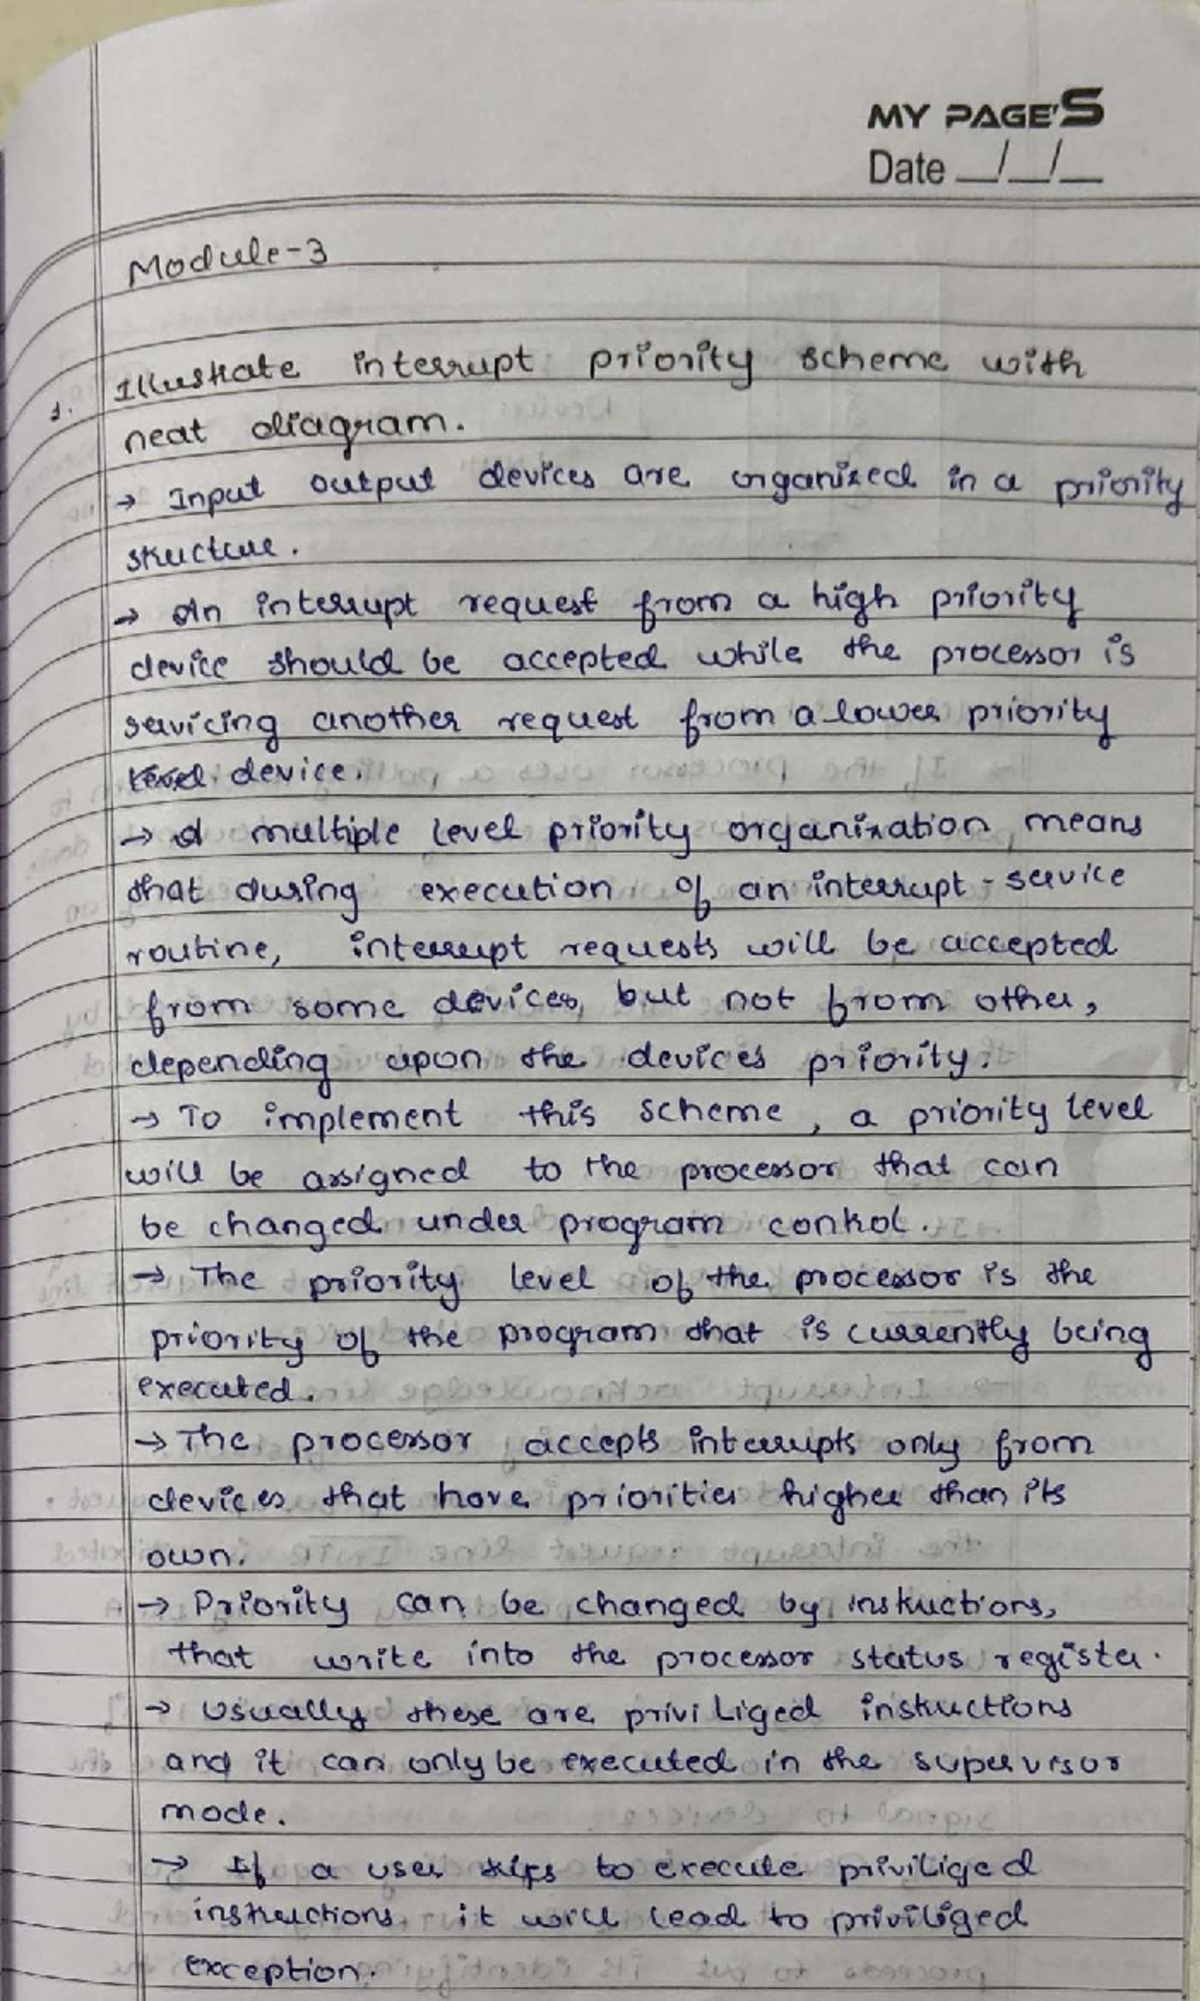 MY PAGE'S
Date __/__/__
Module-3
1. Illustrate interrupt priority scheme with
neat diagram.
→ Input output devices are organized in a priority
structure.
→ An interrupt request from a high priority
device should be accepted while the processor is
servicing another request from a lower priority
level device.
→ A multiple level priority organization means
that during execution of an interrupt-service
routine, interrupt requests will be accepted
from some devices, but not from other,
depending upon the devices priority.
→ To implement this scheme, a priority level
will be assigned to the processor that can
be changed under program control.
→ The priority level of the processor is the
priority of the program that is currently being
executed.
→ The processor accepts interrupts only from
devices that have priorities higher than its
own.
→ Priority can be changed by instructions,
that write into the processor status register.
→ Usually these are priviliged instructions
and it can only be executed in the supervisor
mode.
→ If a user trys to execute priviliged
instructions, it will lead to priviliged
exception.